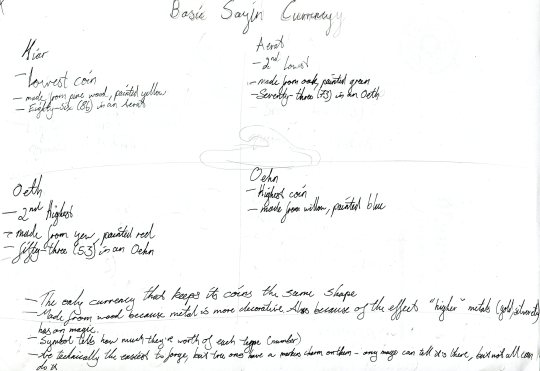 Basic Sayin Currency
Kiar
- Lowest coin
- made from pine wood, painted yellow
- Eighty-Six (86) in an Aerat
Aerat
- 2nd Lowest
- made from oak, painted green
- Seventy-three (73) in an Oeth
Oeth
- 2nd Highest
- made from yew, painted red
- fifty-three (53) in an Oehn
Oehn
- Highest coin
- Made from willow, painted blue
- The only currency that keeps its coins the same shape
- Made from wood because metal is more decorative. Also because of the effects "higher" metals (gold, silver, etc)
has on magic.
- Symbol tells how much they're worth of each type (number)
- Are technically the easiest to forge, but true ones have a makers charm on them - any mage can tell it's there, but not all can
do it